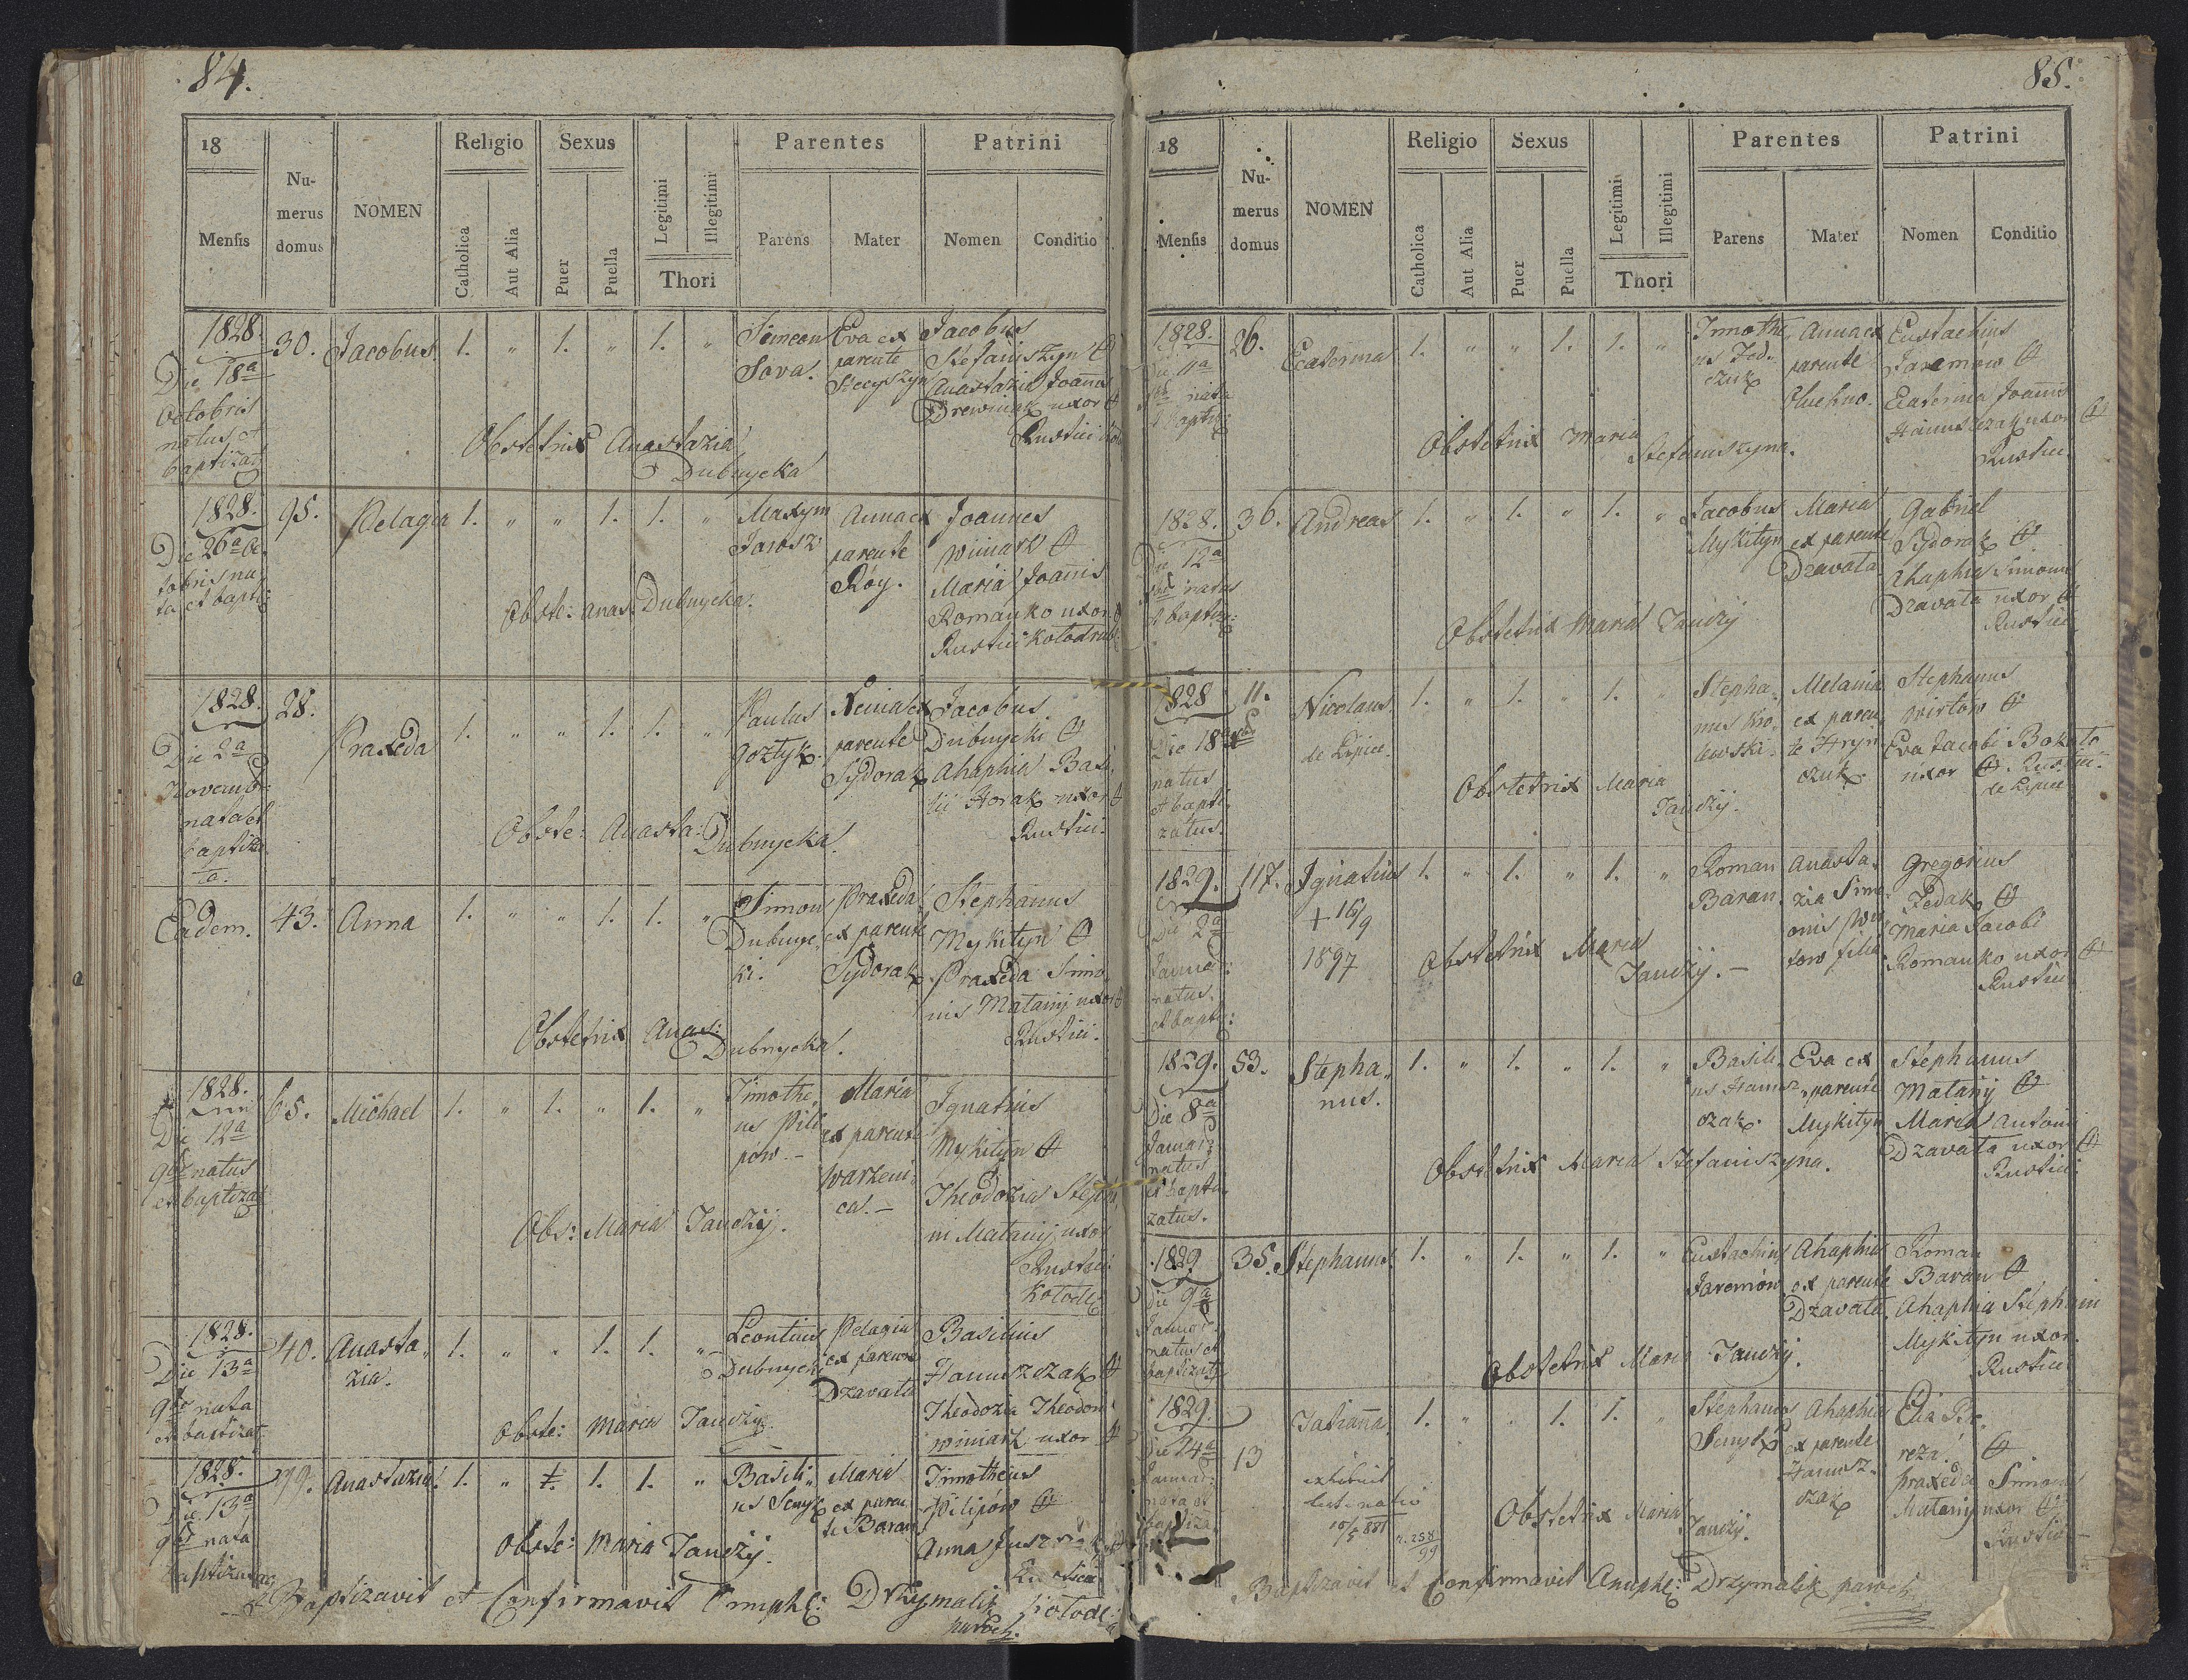 84.
18
Mensis
Nu-
merus
domus
NOMEN
Religio
Catholica
Aut Alia
Sexus
Puer
Puella
Legitimi
Illegitimi
Thori
Parentes
Parens
Mater
Patrini
Nomen
Conditio
1828.
Die 18a
Octobris
natus et
baptizat
30.
Jacobus
1. " 1. " 1. "
Simeon
Sova.
Eva ex
parente
Stecyszyn
Jacobus
Stefaniszyn
Anastazia Joannis
Drewniak uxor
Rustici
Obstetrix Anastazia
Dubnycka
1828.
Die 26a Oc
tobris na
ta et bapti:
95.
Pelagia
1. " " 1. 1. "
Maxym
Jarosz
Anna ex
parente
Róy.
Joannes
Winiarz
Maria Joannis
Romanko uxor
Rustici Kołodrub:
Obste: Anas: Dubnycka.
1828.
Die 2a
Novembr
nata et
baptiza
ta.
28.
Praxeda
1. " " 1. 1. "
Paulus
Goztyk.
Xenia ex
parente
Sydorak
Jacobus
Dubnycki
Ahaphia Basi
lii Horak uxor
Rustici.
Obste: Anasta: Dubnycka.
Eadem.
43.
Anna
1. " " 1. 1. "
Simon
Dubnyc
ki.
Praxeda
ex parente
Sydorak
Stephanus
Mykityn
Praxeda Simo
nis Matanij uxor
Rustici.
Obstetrix Anas:
Dubnycka.
1828.
Die 12a
9br natus
et baptizat
65.
Michael
1. " 1. " 1. "
Timothe,
us Pili
pów.-
Maria
ex parente
Warzeni
ca.-
Ignatius
Mykityn
Theodozia Steph
ni Matanij uxor
Rustici
Kołodr:
Obs: Maria Janczÿ.
1828.
Die 13a
9br nata
et baptizat
40.
Anasta,
zia.
1. " " 1. 1. "
Leontius
Dubnycki
Pelagia
ex parente
Dzavata
Basilius
Hanuszczak
Theodozia Theodori
Winiarz uxor
Obste: Maria Janczÿ.
1828.
Die 13a
9br nata
baptizata
79.
Anastazia
1. " 1. 1. 1. "
Basili,
us Senyk
Maria
ex paren
te Baran
Timotheus
Pilipów
Anna
Rustici
Obste: Maria Janczÿ.
Baptizavit et Confirmavit Onuph: Drzymalik Kołodr:
paroch.
85.
18
Mensis
Nu-
merus
domus
NOMEN
Religio
Catholica
Aut Alia
Sexus
Puer
Puella
Legitimi
Illegitimi
Thori
Parentes
Parens
Mater
Patrini
Nomen
Conditio
1828.
Die 11a
nata
et baptiz:
26.
Ecaterina
1. " " 1. 1. "
Timothe
us Fed,
czuk
Anna ex
parente
Oluchno.
Eustachius
Jaremów
Ecaterina Joannis
Hanuszczak uxor
Rustici
Obstetrix Maria
Stefaniszyna.
1828.
Die 12a
natus
et baptiz:
36.
Andreas
1. " 1. " 1. "
Jacobus
Mykityn
Maria
ex parente
Dzavata
Gabriel
Sydorak
Ahaphia Simonis
Dzavata uxor
Rustici
Obstetrix Maria Janczÿ
1828
Die 18
natus
et bapti
zatus.
11.
Nicolaus.
de Lipice.
1. " 1. " 1. "
Stepha,
nus Kro
lewski.
Melania
ex paren
te Hryn
czuk.
Stephanus
Wistów
Eva Jacobi
uxor Rustici.
de Lipice
Obstetrix Maria
Janczÿ.
1829.
Die 2a
Januar:
natus.
et bapti:
117.
Ignatius
+ 16/9
1897
1. " 1. " 1. "
Roman
Baran.
Anasta,
zia Simo
onis Wis
tow filia
Gregorius
Fedak
Maria Jacobi
Romanko uxor
Rustici
Obstetrix Maria
Janczÿ.-
1829.
Die 8a
Januar:
natus
et bapti
zatus.
53.
Stepha,
nus.
1. " 1. " 1. "
Basili,
us Hanusz
czak.
Eva ex
parente
Mykityn
Stephanus
Matanÿ
Maria Antoni
Dzavata uxor
Rustici
Obstetrix Maria Stefaniszyna.
1829
Die 9a
Januar.
natus et
baptizat
35.
Stephanus.
1. " 1. " 1. "
Eustachius
Jaremów
Ahaphia
ex parente
Dzavata
Roman
Baran
Ahaphia Stephani
Mykityn uxor.
Rustici
Obstetrix Maria Janczÿ.
1829.
Die 24a
Januar:
nata et
baptiza
13
Tatianna
10/5 881
n. 258/99
1. " " 1. 1. "
Stephanus
Senyk
Ahaphia
ex parente
Hanusz
czak
Elia Be
reza.
Praxeda Simonis
Matanÿ uxor
Rustici
Obstetrix Maria
Janczÿ.
Baptizavit et Confirmavit Onuph: Drzymalik paroch: